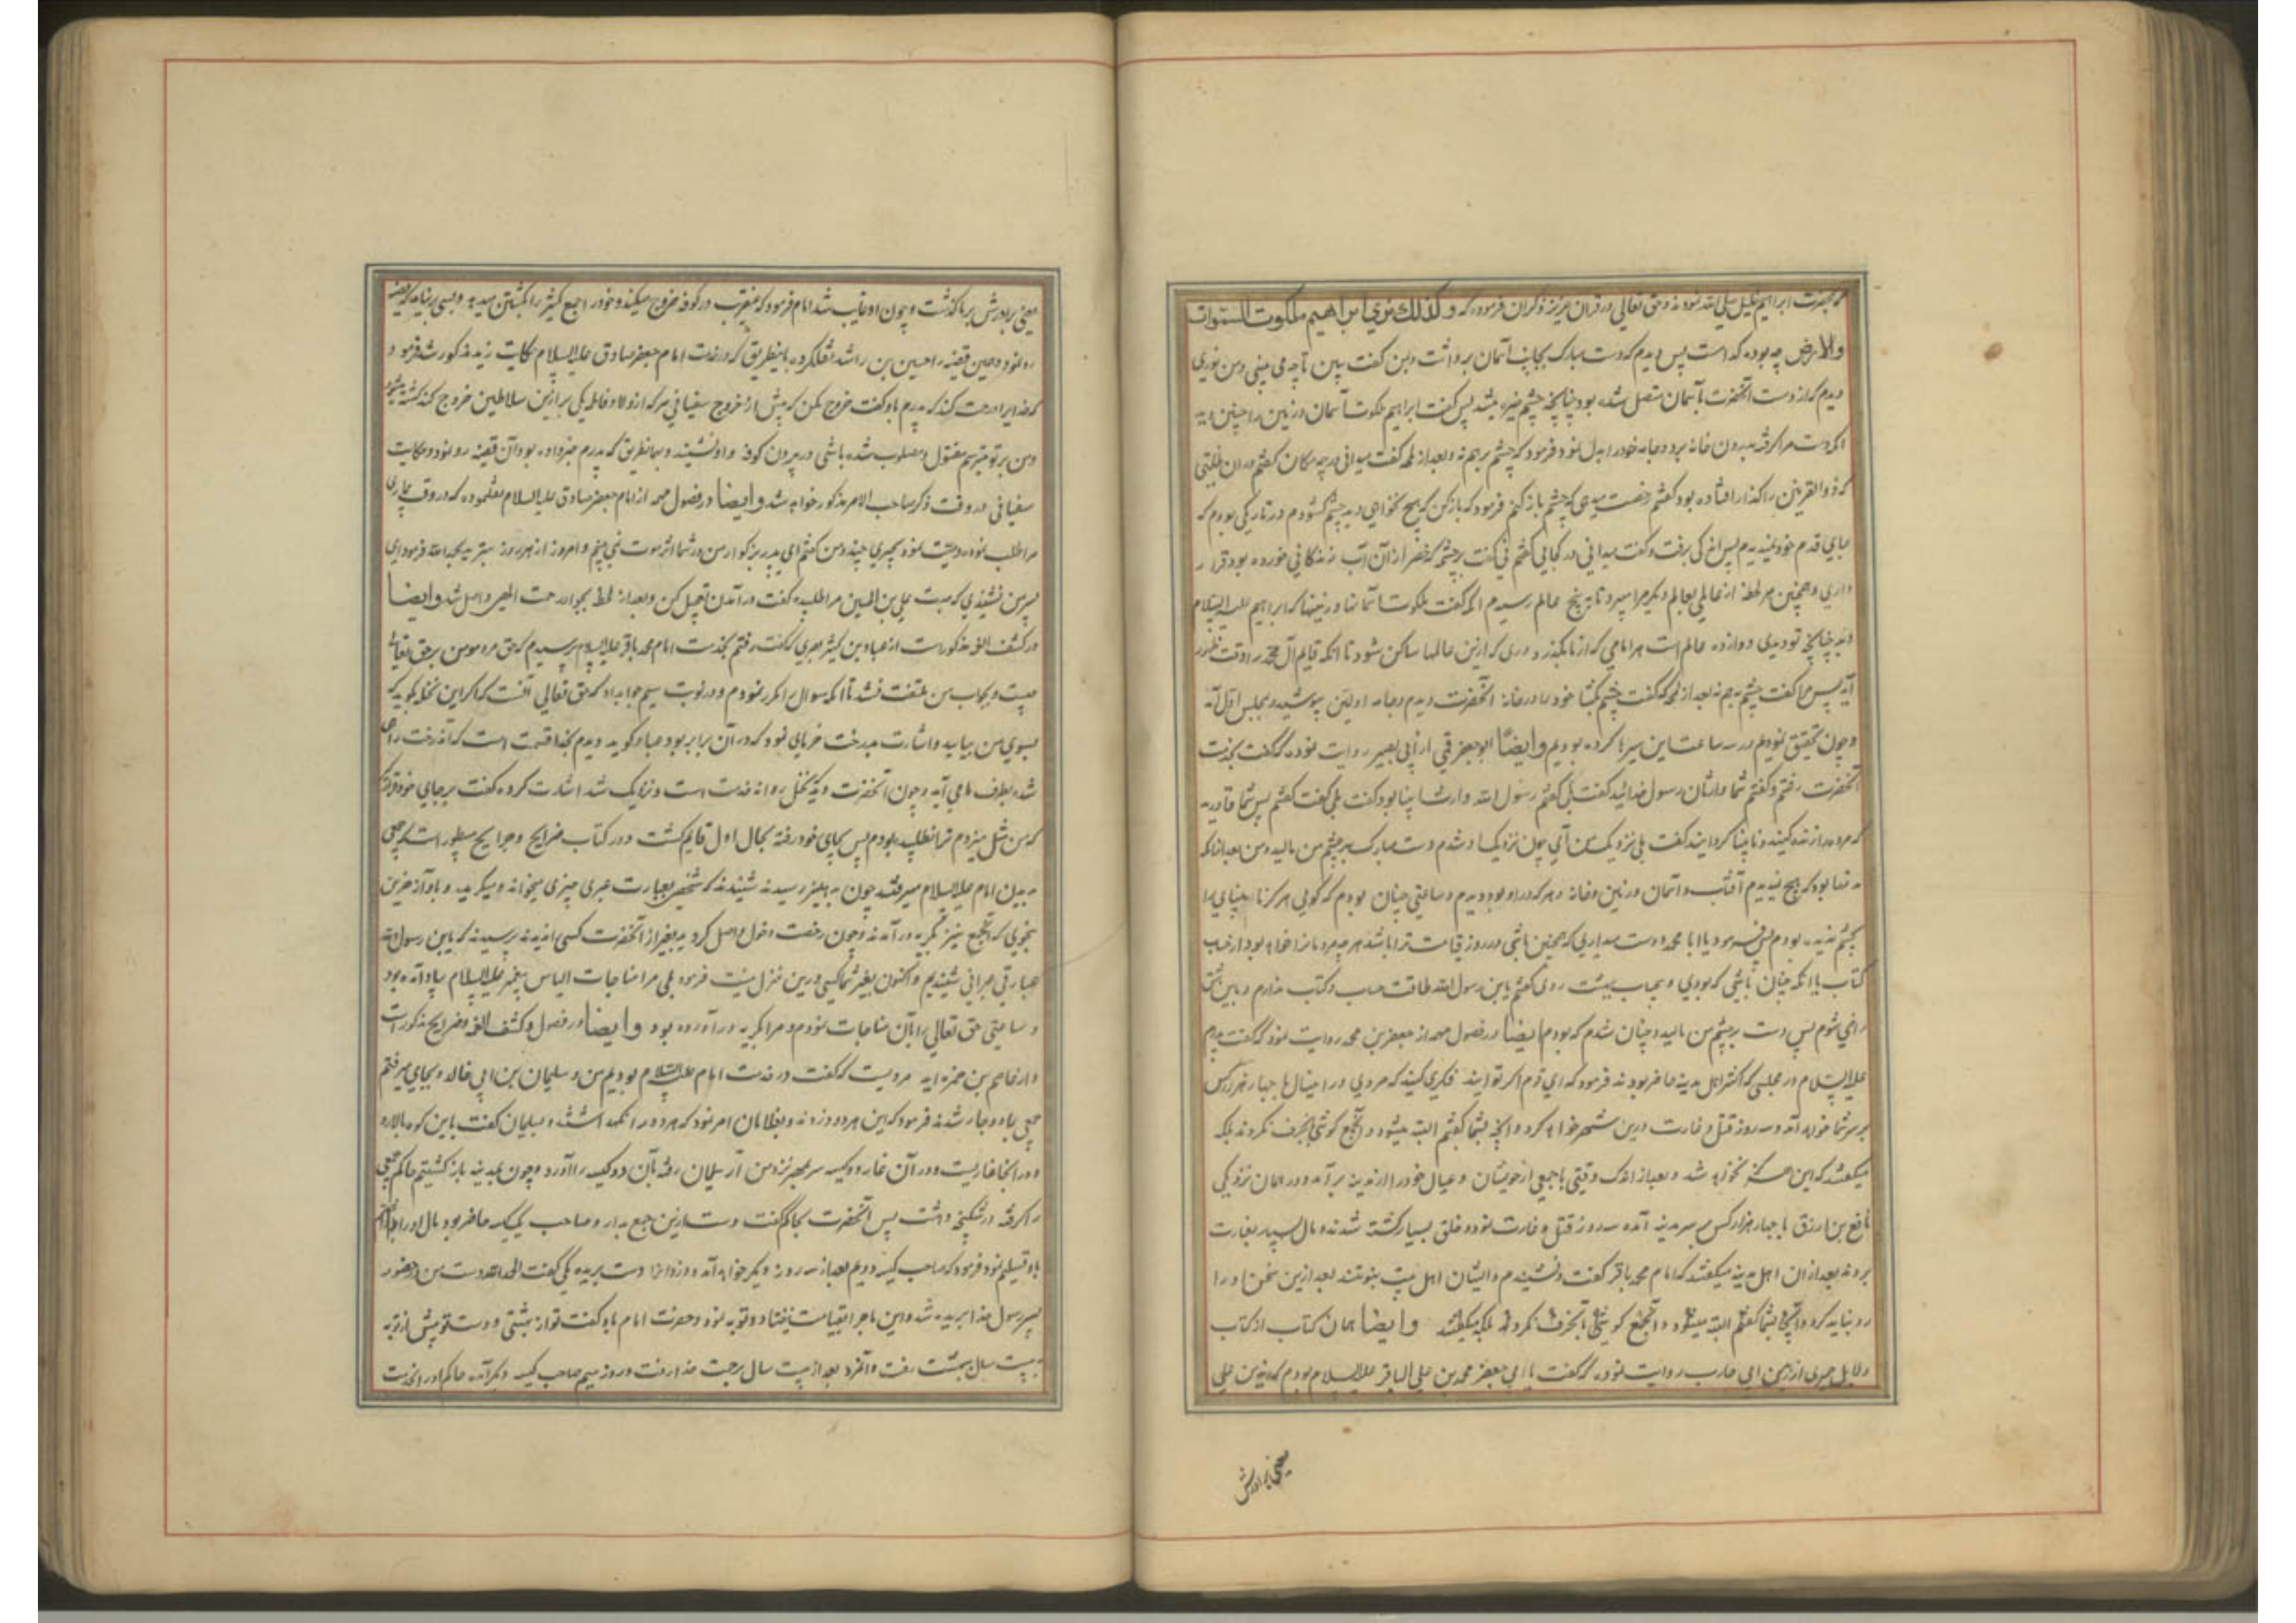 که بحضرت ابراهیم خلیل صلی الله نموده و حق تعالی در قرآن عزیز ذکر آن فرموده که و کذلک نری ابراهیم ملکوت السموات
والارض چه بوده که است پس دیدم که دست مبارک بجانب آسمان برداشت و بمن گفت ببین تا چه می بینی و من نوری
دیدم که از دست آنحضرت بآسمان متصل شده بود چنانچه چشم خیره میشد پس گفت ابراهیم ملکوت آسمان و زمین را چنین دید
آنکه دست مرا گرفته بدرون خانه برد و جامه خود را بدل نمود و فرمود که چشم برهم نه و بعد از لمحه گفت میدانی در چه مکان گفتم در آن ظلمتی
که ذوالقرنین را گذار افتاده بود گفتم رخصت میدهی که چشم باز کنم فرمود که باز کن که هیچ نخواهی دید چشم گشودم در تاریکی بودم که
جای قدم خود ندیدم پس اندکی برفت و گفت میدانی در کجایی گفتم نی گفت بر چشمه که خضر از آن آب زندگانی خورده بود قرار
داری و همچنین هر لحظه از عالمی بعالم دیگر مرا میبرد تا به پنج عالم رسیدم آنکه گفت ملکوت آسمانها و زمینها که ابراهیم علیه السلام
دید چنانچه تو دیدی دوازده عالم است هر امامی که از ما بگذرد در یکی ازین عالمها ساکن شود تا آنکه قایم آل محمد را وقت ظهور
آید پس مرا گفت چشم برهم نه بعد از لمحه گفت چشم بگشا خود را در خانه آنحضرت دیدم و جامه اولین پوشیده بمجلس اول آمد
و چون تحقیق نمودیم در سه ساعت این سیرها کرده بودیم وایضا ابو جعفر قمی از ابی بصیر روایت نموده که گفت بخدمت
آنحضرت رفتم و گفتم شما وارثان رسول خدائید گفت بلی گفتم رسول الله وارث انبیا بود گفت بلی گفت گفتم پس شما قادرید
که مرده را زنده کنید و نابینا را بینا گردانید گفت بلی نزدیک من آی چون نزدیک او شدم دست مبارک بر چشم من مالید و من بعد از آنکه
مدتها بود که هیچ ندیدم آفتاب و آسمان و زمین و خانه و هر که در او بود دیدم و ساعتی چنان بودم که گویی هرگز نابینایی را
بچشم ندیده بودم پس فرمود یا ابا محمد دوست میداری که همچنین باشی و در روز قیامت ترا باشد هر چه مردمانرا خواهد بود از حساب
کتاب یا آنکه چنان باشی که بودی و بیحساب ببهشت روی گفتم یابن رسول الله طاقت حساب و کتاب ندارم و باین شق
راضی شوم پس دست بر چشم من مالید و چنان شدم که بودم ایضا در فصول مهمه از جعفر بن محمد روایت نمود که گفت پدرم
علیه السلام در مجلسی که اکثر اهل مدینه حاضر بودند فرمود که ای قوم اگر توانید فکری کنید که مردی در این سال با چهار هزار کس
بر سر شما خواهد آمد و سه روز قتل و غارت درین شهر خواهد کرد و آنچه بشما گفتم البته میشود و آن جمع گوش بآن حرف نکردند بلکه
میگفتند که این هرگز نخواهد شد و بعد از اندک وقتی با جمعی از خویشان و عیال خود را از مدینه برآمد و در همان نزدیکی
نافع بن ازرق با چهار هزار کس بر سر مدینه آمده سه روز قتل و غارت نمود و خلقی بسیار کشته شدند و مال بسیار بغارت
بردند بعد از آن اهل مدینه میگفتند که امام محمد باقر گفت و نشنیدیم و ایشان اهل بیت نبوتند بعد ازین سخن او را
رد نباید کرد و آنچه بشما گفتم البته میشود و آن جمع گوش بآن حرف نکردند بلکه میگفتند وایضا همان کتاب از کتاب
دلایل حمیری از زید بن ابی حازب روایت نموده که گفت با ابی جعفر محمد بن علی الباقر علیه السلام بودم که زید بن علی
یعنی برادرش
یعنی برادرش بر ما گذشت و چون او غایب شد امام فرمود که عنقریب در کوفه خروج میکند و خود را جمع کثیر را بکشتن میدهد و بسی برنیامد که قضیه
رو نمود و همین قضیه را حسین بن راشد نقل کرده باینطریق که در خدمت امام جعفر صادق علیه السلام حکایت زید مذکور شد فرمود
که خدا یرا رحمت کند که پدرم باو گفت خروج مکن که پیش از خروج سفیانی هر که از اولاد فاطمه یکی بر ازین سلاطین خروج کند کشته میشود
و من بر تو میترسم مقتول و مصلوب شده باشی در بیرون کوفه و او نشنید و بهمانطریق که پدرم خبر داده بود آن قضیه رو نمود و حکایت
سفیانی در وقت ذکر صاحب الامر مذکور خواهد شد وایضا در فصول مهمه از امام جعفر صادق علیه السلام نقل نموده که در وقت بیماری
مرا طلب نموده وصیت نمود بچیزی چند و من گفتم ای پدر بزرگوار من در شما اثر موت نمی بینم و امروز از هر روز بهترید بحمدالله فرمود ای
پسر من نشنیدی که حضرت علی بن الحسین مرا طلبیده گفت در آمدن تعجیل کن و بعد از لحظه بجوار رحمت الهی واصل شد وایضا
در کشف الغمه مذکور است از عباد بن کثیر بصری که گفت رفتم بخدمت امام محمد باقر علیه السلام پرسیدم که حق مرد مومن بر حق تعالی
چیست و بجواب من ملتفت نشد تا آنکه سوال را مکرر نمودم و در نوبت سیم جوابداد که حق تعالی آنست که اگر این نخله بگوید که
بسوی من بیا بیاید و اشارت بدرخت خرمای نمود که در آن برابر بود عباد گوید دیدم بخدا قسمت است که آن درخت راهی
شده بطرف ما می آید و چون آنحضرت دید که نخل روانه خدمت است و نزدیک شد اشارت کرده گفت بر جای خود قرار گیر
که من مثل میزدم ترا نطلبیده بودم پس بجای خود رفته بحال اول قایم گشت و در کتاب خرایج و جرایح مسطور است که جمعی
بدیدن امام علیه السلام میرفتند چون بدهلیز رسیدند شنیدند که شخصی بعبارت عبری چیزی میخواند و میگرید و بآواز حزین
بنحوی که آن جمع نیز بگریه درآمدند و چون رخصت دخول حاصل کردید بغیر از آنحضرت کسی را ندیدند پرسیدند که یابن رسول الله
عبارتی عبرانی شنیدیم و اکنون بغیر شما کسی درین منزل نیست فرمود بلی مرا مناجات الیاس پیغمبر علیه السلام بیاد آمده بود
و ساعتی حق تعالی را بآن مناجات نمودم و مرا بگریه درآورده بود وایضا در فصول و کشف الغمه و خرایج مذکور است
و از عاصم بن حمزه اید مرویست که گفت در خدمت امام علیه السلام بودیم من و سلیمان بن ابی خالد و بجای میرفتم
جمعی بما دوچار شدند فرمود که این هر دو دزدند و بغلامان امر نمود که هر دو را نگهداشتند و بسلیمان گفت باین کوه بالا رو
و در آنجا غاریست و در آن غار دو کیسه سر بمهر نزد من آر سلیمان رفته بآن دو کیسه را آورد و چون بمدینه باز گشتیم حاکم جمعی
را گرفته در شکنجه داشت پس آنحضرت بحاکم گفت دست ازین جمع بدار و صاحب یک کیسه حاضر بود مال او را
باو تسلیم نمود و فرمود که صاحب کیسه دویم بعد از سه روز دیگر خواهد آمد و دزدانرا دست بریده یکی گفت الحمدلله دست من در حضور
پسر رسول خدا بریده شد و این ماجرا بقیامت نیفتاد و توبه نمود و حضرت امام باو گفت تو از بهشتی و دست تو پیش از تو به
بیست سال ببهشت رفت و آنمرد بعد از بیست سال برحمت خدا رفت و روز سیم صاحب کیسه دیگر آمده حاکم او را بخدمت